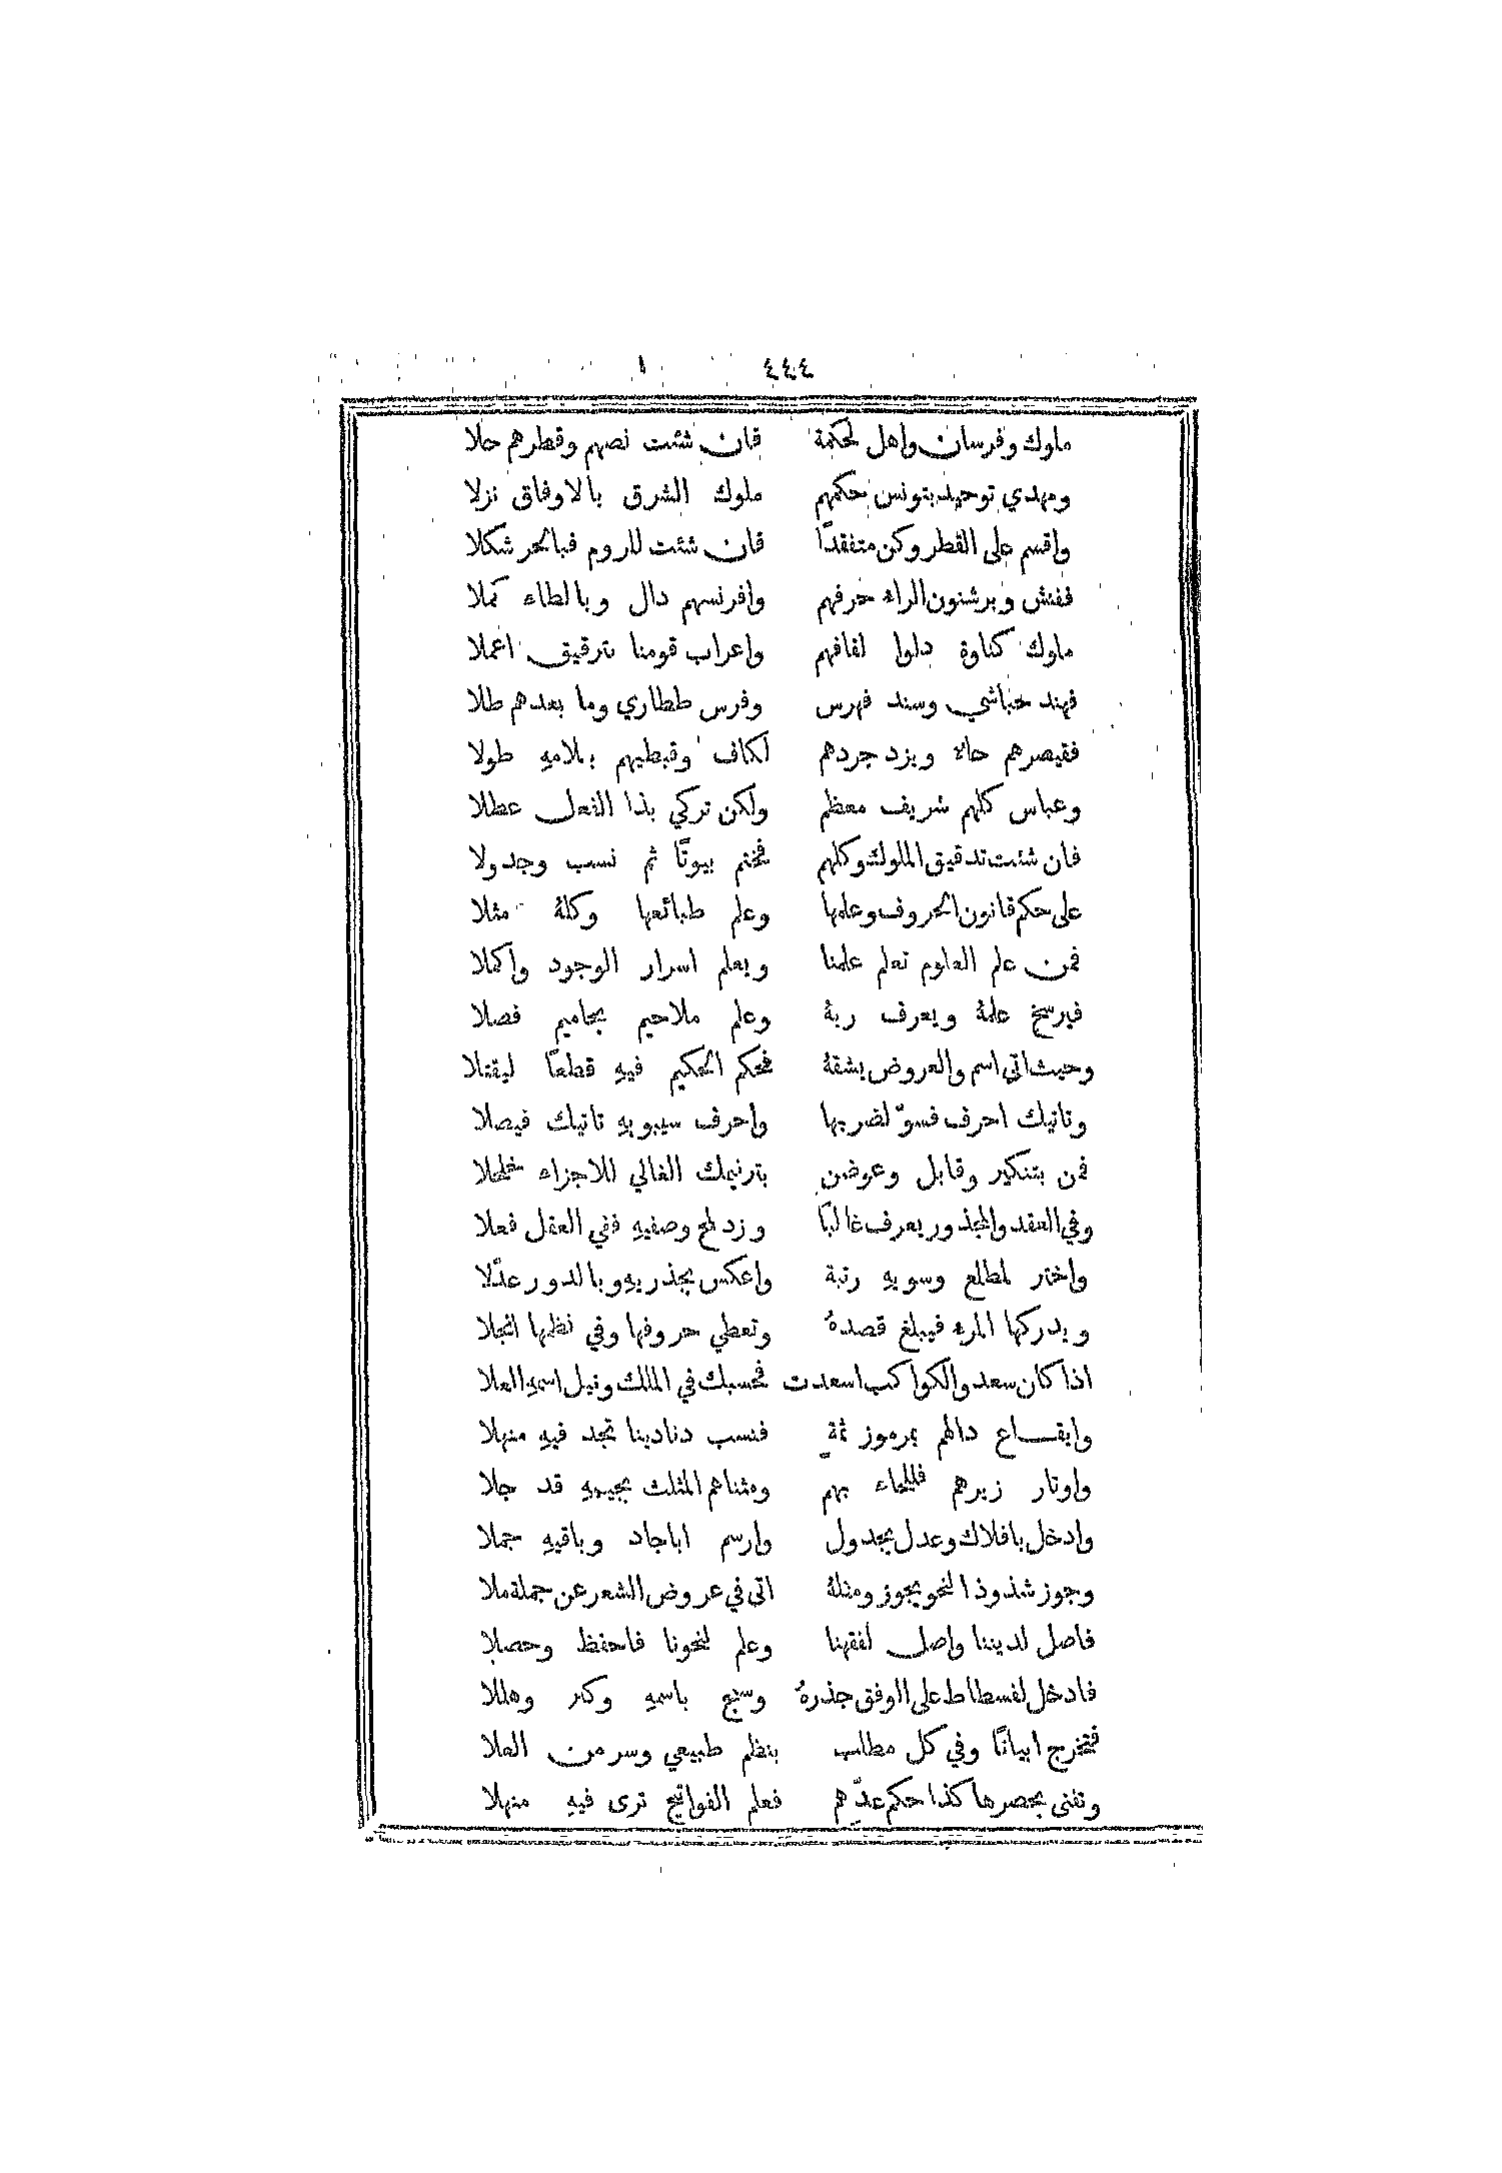 ٤٤٤
ملوك وفرسان واهل لحكمة فان شئت نصهم وقطرهم حلا
ومهدي توحيد بتونس حكمهم ملوك الشرق بالاوفاق نزلا
واقسم على القطر وكن متفقدًا فان شئت للروم فبالحر شكلا
ففنش وبرشنون الراء حرفهم وافرنسهم دال وبالطاء كملا
ملوك كناوة دلوا لقافهم واعراب قومنا بترقيق اعملا
فهند حباشي وسند فهرس وفرس ططاري وما بعدهم طلا
فقيصرهم حاء ويزدجردهم لكاف وقبطيهم بلامهِ طولا
وعباس كلهم شريف معظم ولكن تركي بذا الفعل عطلا
فان شئت تدقيق الملوك وكلهم فختم بيوتًا ثم نسب وجدولا
على حكم قانون الحروف وعلمها وعلم طبائعها وكلهُ مثلا
فمن علم العلوم تعلم علمنا ويعلم اسرار الوجود واكملا
فيرسخ علمهُ ويعرف ربهُ وعلم ملاحيم بحاميم فصلا
وحيث اتى اسم والعروض يشقهُ فحكم الحكيم فيهِ قطعًا ليقتلا
وتاتيك احرف فسوّ لضربها واحرف سيبويهِ تاتيك فيصلا
فمن بتنكير وقابل وعوضن بترنيمك الغالي للاجزاء خلخلا
وفي العقد والمجذور يعرف غالبًا وزد لمح وصفيهِ ففي العقل فعلا
واختر لمطلع وسويهِ رتبة واعكس بجذريهِ وبالدور عدّلا
ويدركها المرء فيبلغ قصدهُ وتعطي حروفها وفي نظمها انجلا
اذا كان سعد والكواكب اسعدت فحسبك في الملك ونيل اسمهِ العلا
وايقـاع دالهم بمرموز ثمةٍ فنسب دنادينا تجد فيهِ منهلا
واوتار زيرهم فللحاء بهم ومثناهم المثلث بجيمهِ قد جلا
وادخل بافلاك وعدل بجدول وارسم اباجاد وباقيهِ جملا
وجوز شذوذ النحو يجوز ومثلهُ اتى في عروض الشعر عن جملة ملا
فاصل لديننا واصل لفقهنا وعلم لنحونا فاحفظ وحصلا
فادخل لفسطاط على الوفق جذرهُ وسبح باسمهِ وكبر وهللا
فتخرج ابياتًا وفي كل مطلب بنظم طبيعي وسر من العلا
وتفنى بحصرها كذا حكم عدّهم فعلم الفواتيح ترى فيهِ منهلا